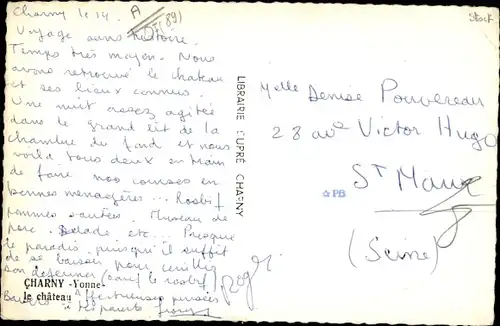 Charny le 14. A
(89)
Voyage sans histoire.
Temps très moyen. Nous
avons retrouvé le chateau
et ses lieux connus.
Une nuit assez agitée
dans le grand lit de la
chambre du fond et nous
voilà tous deux en train
de faire nos courses en
bonnes menagères... Rosbif
pommes sautées. Museau de
porc. Salade etc... Presque
le paradis puisqu'il suffit
de se baisser pour cueillir
son dejeuner (sauf le rosbif)
Affectueuses pensées
à tes parents
Roger
CHARNY -Yonne-
le château
LIBRAIRIE CUPRÉ CHARNY
Stock
Melle Denise Pouvereau
28 ave Victor Hugo
St Maur
(Seine)
☆PB